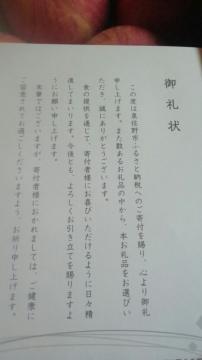 御礼状
この度は泉佐野市ふるさと納税へのご寄付を賜り、心より御礼
申し上げます。また数あるお礼品の中から、本お礼品をお選びい
ただき、誠にありがとうございます。
食の提供を通じて、寄付者様にお喜びいただけるように日々精
進してまいります。今後とも、よろしくお引き立てを賜りますよ
うにお願い申し上げます。
末筆ではございますが、寄付者様におかれましては、ご健康に
ご留意されてお過ごしくださいますよう、お祈り申し上げます。